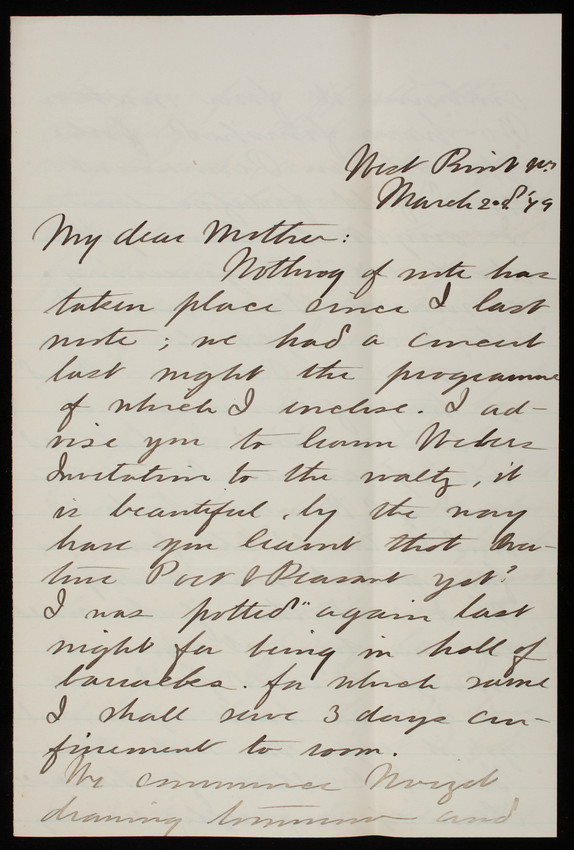 West Point
March 2nd '79
My dear Mother:
Nothing of note has
taken place since I last
wrote; we had a concert
last night the programme
of which I inclose. I ad-
vise you to learn Webers
Invitation to the waltz, it
is beautiful, by the way
have you learnt that Over-
ture Poet & Peasant yet?
I was potted" again last
night for being in hall of
barracks. for which same
I shall serve 3 days con-
finement to room.
We commence
drawing tomorrow and